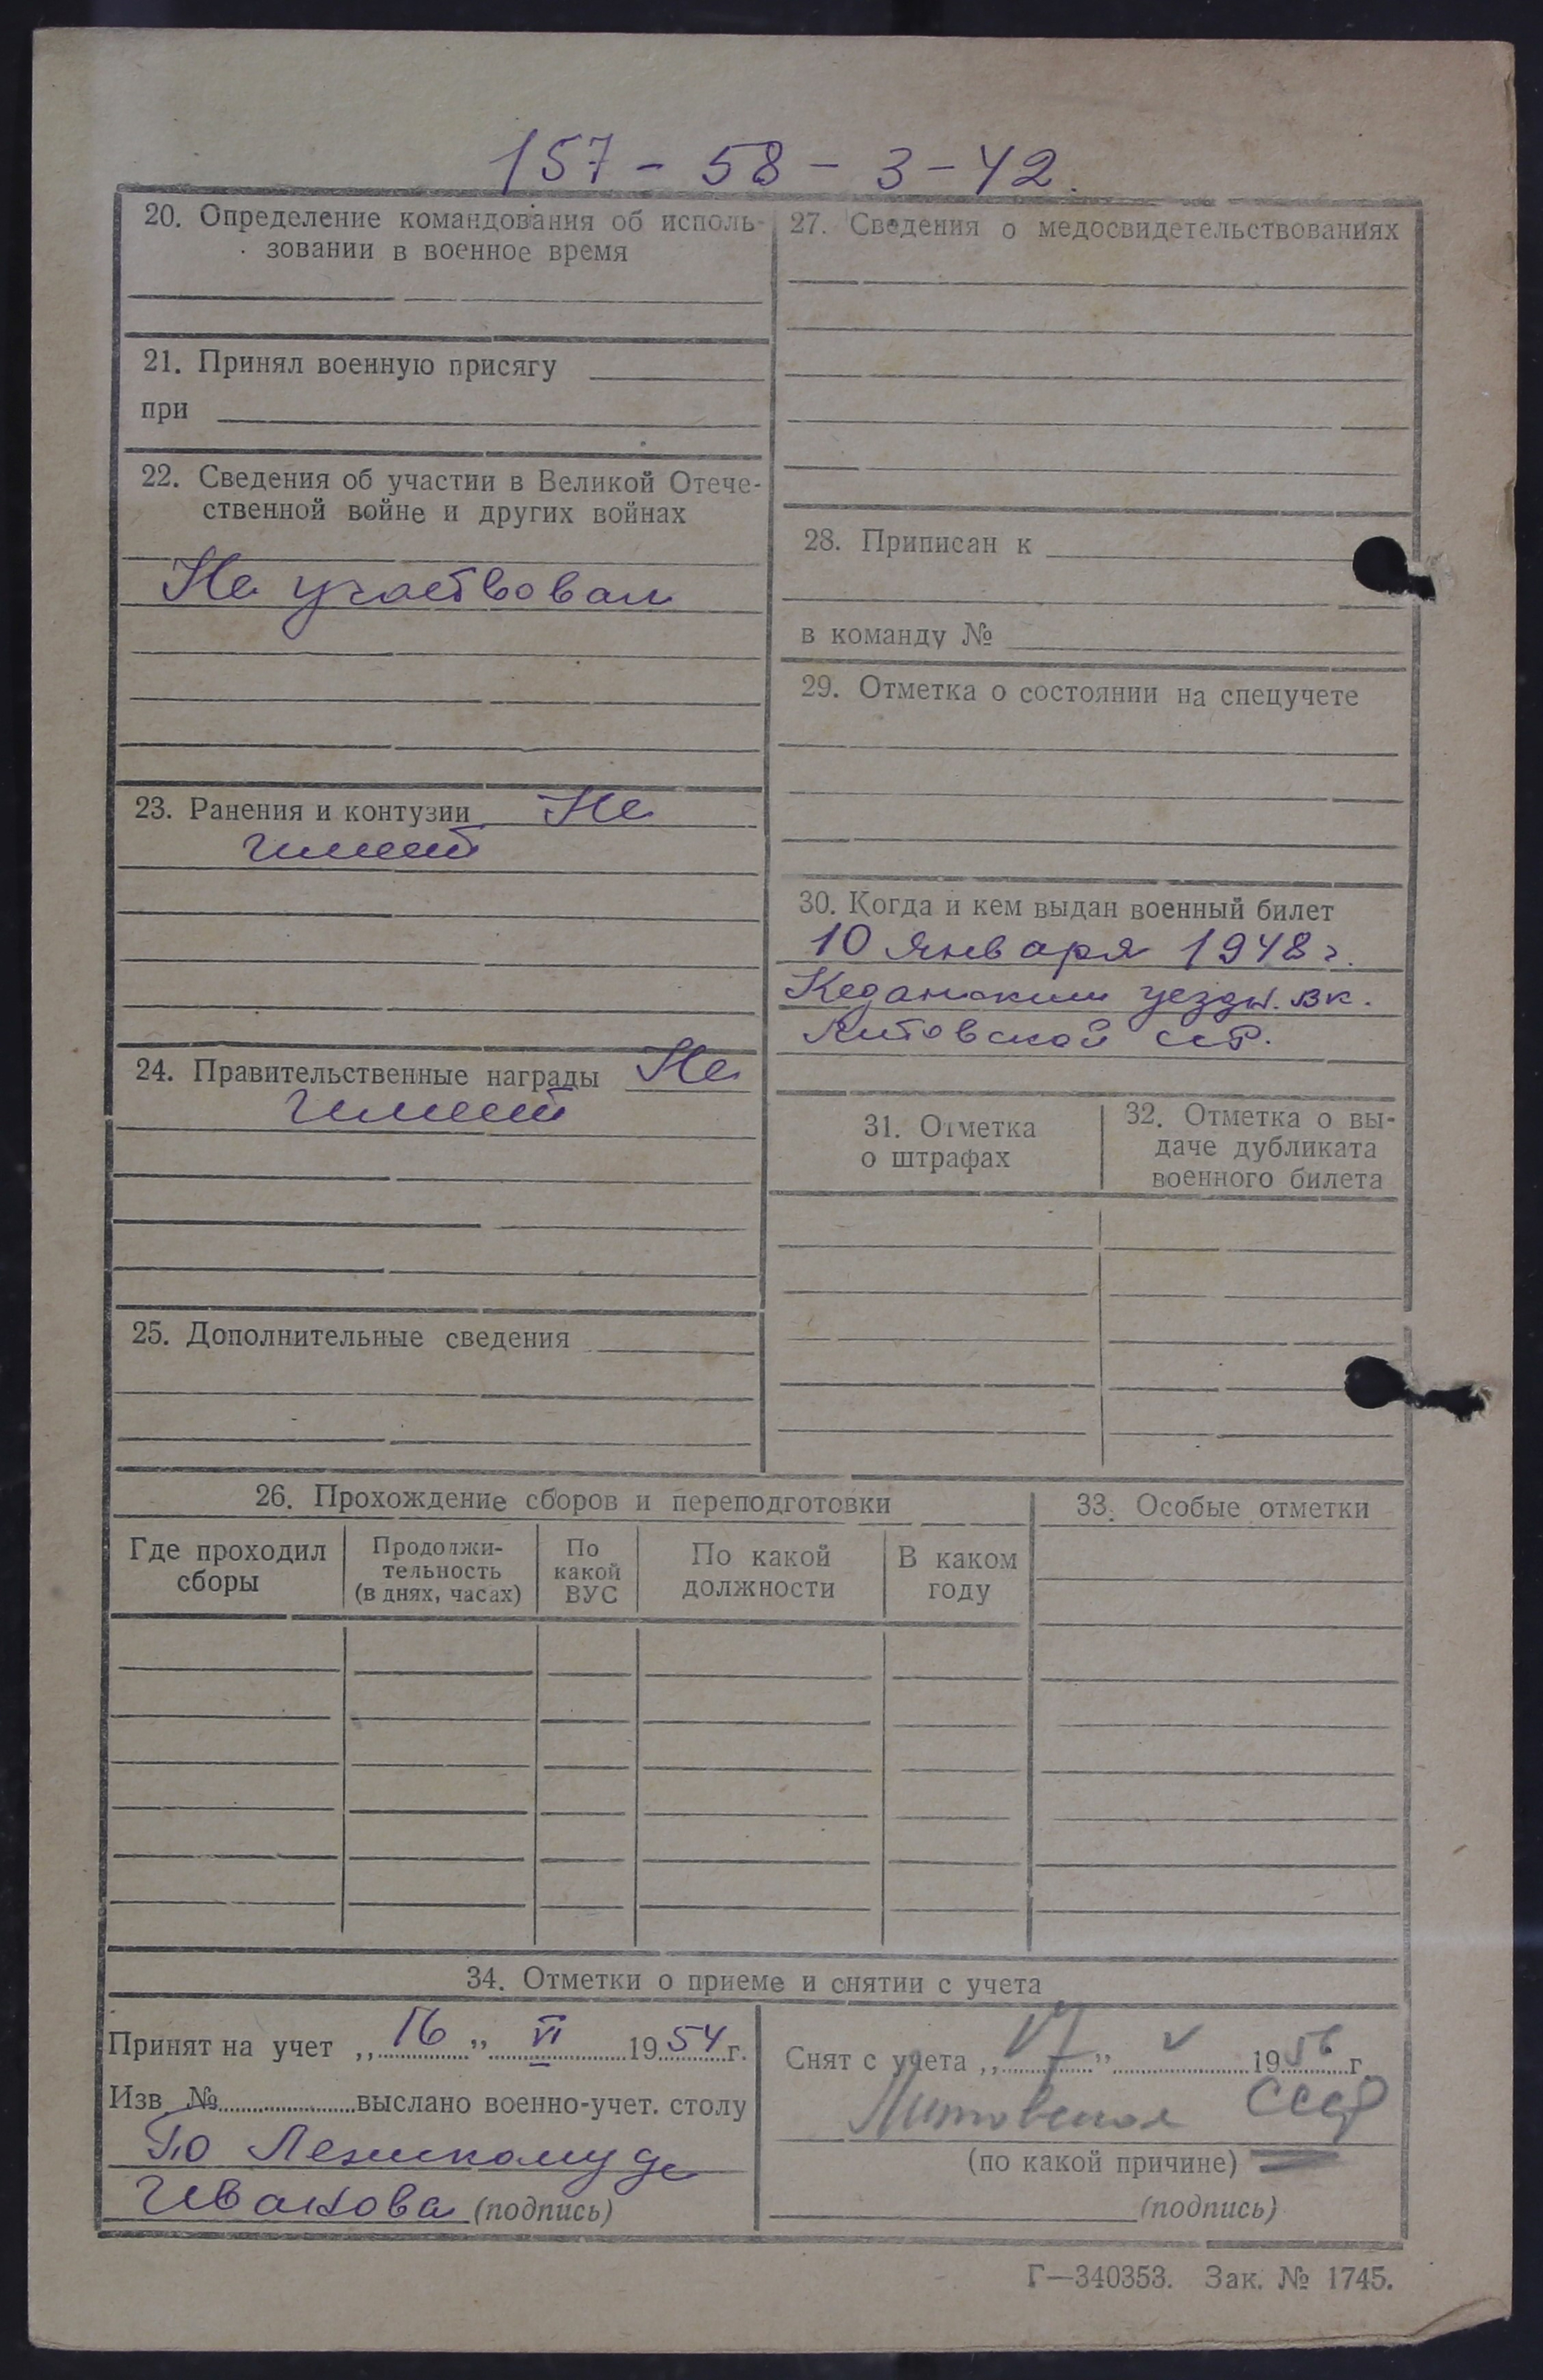 157 - 58 - 3 - 42.
20. Определение командования об исполь-
зовании в военное время
21. Принял военную присягу
при
22. Сведения об участии в Великой Отече-
ственной войне и других войнах
Не участвовал
23. Ранения и контузии Не
имеет
24. Правительственные награды Не
имеет
25. Дополнительные сведения
27. Сведения о медосвидетельствованиях
28. Приписан к
в команду №
29. Отметка о состоянии на спецучете
30. Когда и кем выдан военный билет
10 января 1948 г.
Кеданским уездн. вк.
Литовской ССР.
31. Отметка
о штрафах
32. Отметка о вы-
даче дубликата
военного билета
26. Прохождение сборов и переподготовки
Где проходил
сборы
Продолжи-
тельность
(в днях, часах)
По
какой
ВУС
По какой
должности
В каком
году
33. Особые отметки
34. Отметки о приеме и снятии с учета
Принят на учет „16" VI 1954 г.
Изв. № выслано военно-учет. столу
По
Иванова (подпись)
Снят с учета „17" V 1956 г.
Литовская ССР
(по какой причине)
(подпись)
Г—340353. Зак. № 1745.